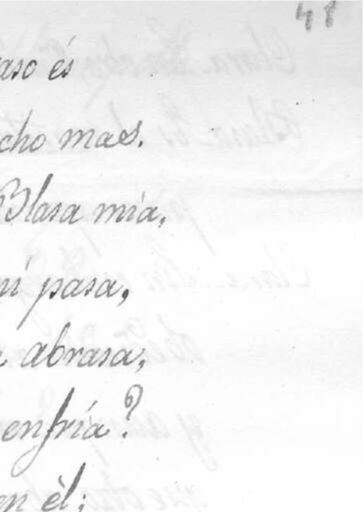 48
aso és
cho mas.
Blasa mia,
ní pasa,
a abrasa,
enfría?
en èl;